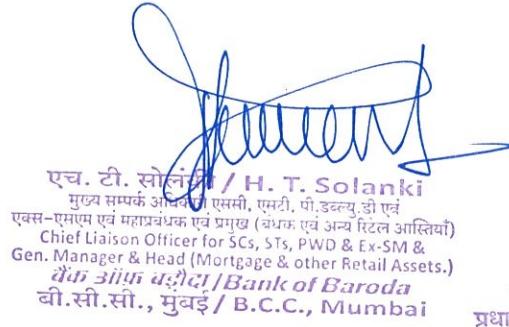 एच. टी. सोलंकी / H. T. Solanki
मुख्य सम्पर्क एससी, एसटी, पी.डब्ल्यु.डी एवं
एक्स-एसएम एवं महाप्रबंधक एवं प्रमुख (बंधक एवं अन्य रिटेल आस्तियाँ)
Chief Liaison Officer for SCs, STs, PWD & Ex-SM &
Gen. Manager & Head (Mortgage & other Retail Assets.)
बैंक ऑफ़ बड़ौदा / Bank of Baroda
बी.सी.सी., मुंबई / B.C.C., Mumbai